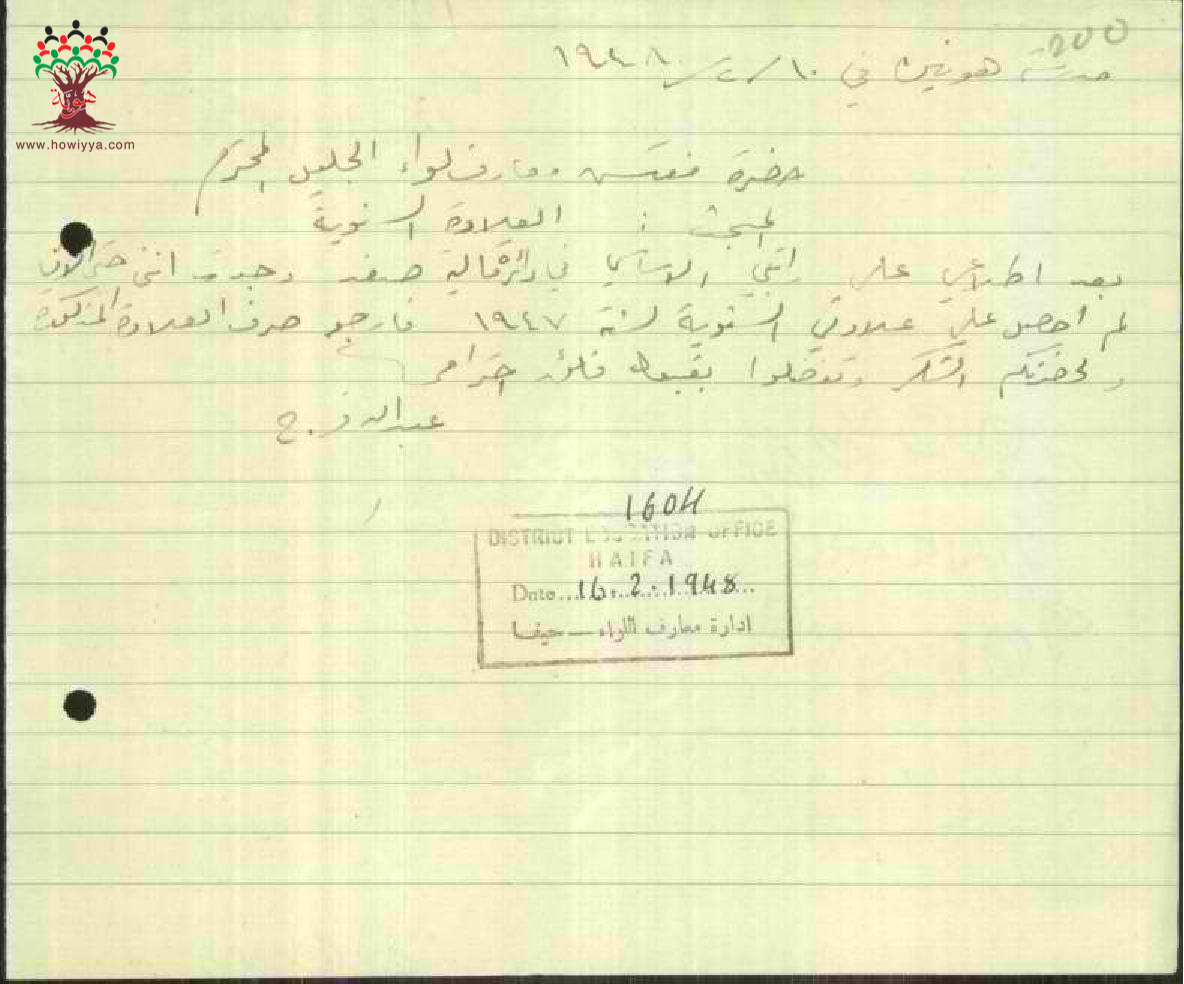 200
مدرسة هونين في ١٠/٢/١٩٤٨
حضرة مفتش معارف لواء الجليل المحترم
المبحث : العلاوة السنوية
بعد اطلاعي على راتبي الاساسي في دائرة مالية صفد وجدت انني حتى الان
لم احصل على علاوتي السنوية لسنة ١٩٤٧ فارجو صرف العلاوة المذكورة
ولحضرتكم الشكر وتفضلوا بقبول فائق احترامي
عبدالله فرج
1604
DISTRICT EDUCATION OFFICE
HAIFA
Date...16.2.1948...
ادارة معارف اللواء — حيفا
هوية
www.howiyya.com